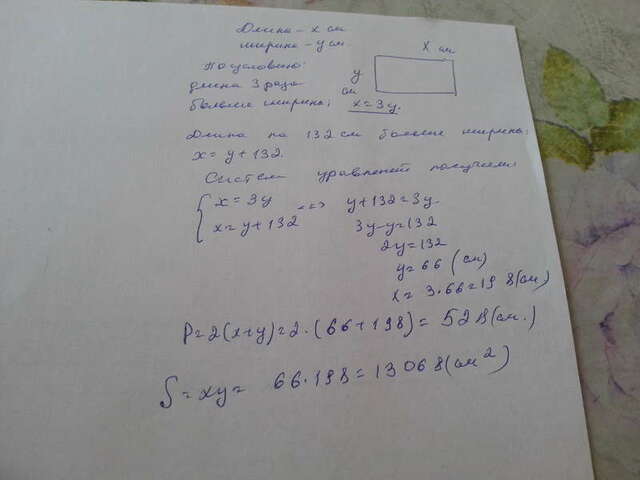 Длина - x см
ширина - y см.
x см
По условию:
y
см
длина 3 раза
больше ширины; x = 3y.
Длина на 132 см больше ширины:
x = y + 132.
Систем уравнений получаем
{ x = 3y
x = y + 132 => y + 132 = 3y
3y - y = 132
2y = 132
y = 66 (см)
x = 3·66 = 198 (см)
P = 2(x+y) = 2·(66+198) = 528 (см.)
S = xy = 66·198 = 13068 (см²)